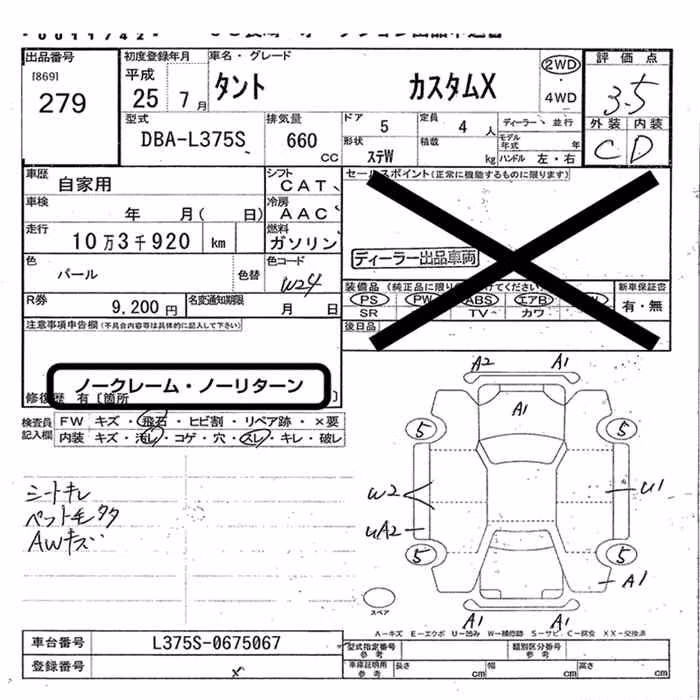 出品番号 初度登録年月 車名・グレード 2WD 評価点
[869] 平成 タント カスタムX 3.5
279 25年 7月 4WD
型式 排気量 ドア 5 定員 4人 ディーラー・並行 外装 内装
DBA-L375S 660cc 形状 ステW 積載 kg モデル年式 年 C D
ハンドル 左・右
車歴 自家用 シフト CAT セールスポイント(正常に機能するものに限ります)
車検 年 月( 日) 冷房 AAC
走行 10万3千920 km 燃料 ガソリン ディーラー出品車両
色 パール 色替 色コード W24 装備品 新車保証書
PS PW ABS エアB 有・無
SR TV カワ
R券 9,200円 名変通知期限 月 日 後日品
注意事項申告欄(不具合内容等は具体的に記入して下さい)
ノークレーム・ノーリターン
修復歴 有〔箇所 〕
検査員記入欄 FW キズ・飛石・ヒビ割・リペア跡・×要
内装 キズ・汚レ・コゲ・穴・スレ・キレ・破レ
A2 A1
A1
5 5
シートキレ W2 U1
ペット毛タタ
AWキズ UA2
5 5
A1
スペア A1 A1
A-キズ E-エクボ U-凹み W-補修跡 S-サビ C-腐食 XX-交換済
車台番号 L375S-0675067 型式指定番号 参考 類別区分番号 参考
登録番号 x 車庫証明用 参考 長さ cm 幅 cm 高さ cm